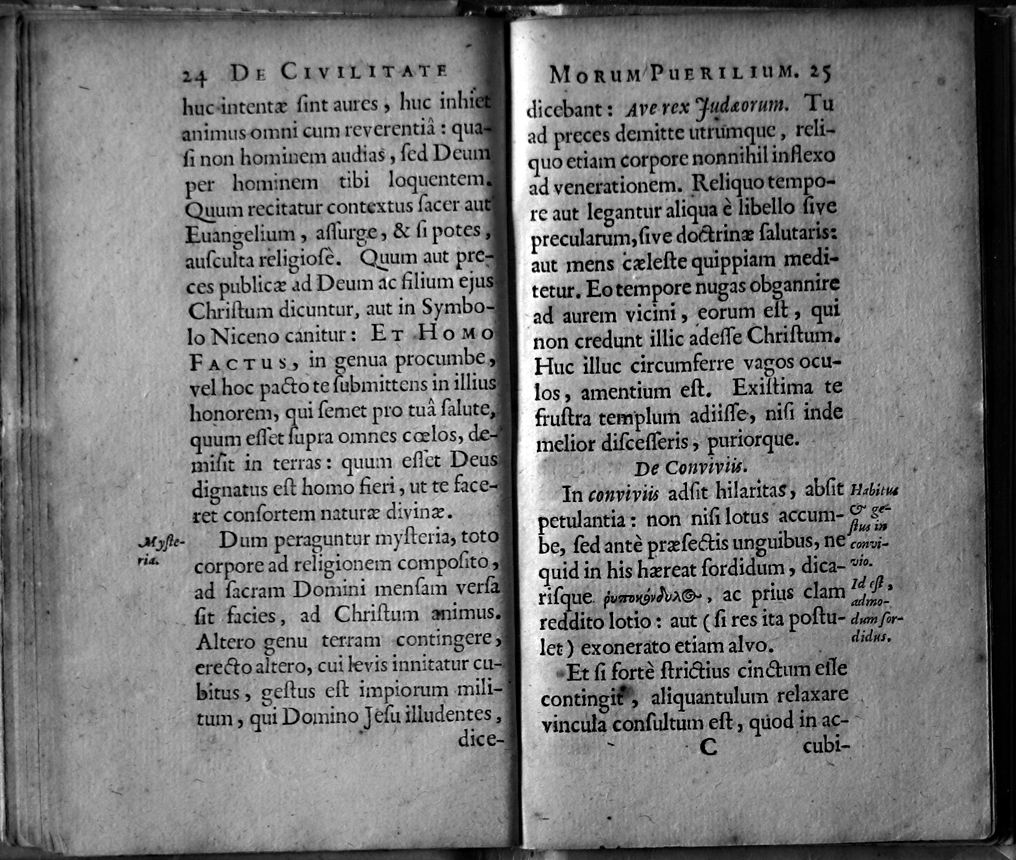 24 DE CIVILITATE
huc intentæ ſint aures, huc inhiet
animus omni cum reverentiâ: qua-
ſi non hominem audias, ſed Deum
per hominem tibi loquentem.
Quum recitatur contextus ſacer aut
Euangelium, aſſurge, & ſi potes,
auſculta religioſè. Quum aut pre-
ces publicæ ad Deum ac filium ejus
Chriſtum dicuntur, aut in Symbo-
lo Niceno canitur: ET HOMO
FACTUS, in genua procumbe,
vel hoc pacto te ſubmittens in illius
honorem, qui ſemet pro tuâ ſalute,
quum eſſet ſupra omnes cœlos, de-
miſit in terras: quum eſſet Deus
dignatus eſt homo fieri, ut te face-
ret conſortem naturæ divinæ.
Myſte-
ria.
Dum peraguntur myſteria, toto
corpore ad religionem compoſito,
ad ſacram Domini menſam verſa
ſit facies, ad Chriſtum animus.
Altero genu terram contingere,
erecto altero, cui levis innitatur cu-
bitus, geſtus eſt impiorum mili-
tum, qui Domino Jeſu illudentes,
dice-
MORUM PUERILIUM. 25
dicebant: Ave rex Judæorum. Tu
ad preces demitte utrumque, reli-
quo etiam corpore nonnihil inflexo
ad venerationem. Reliquo tempo-
re aut legantur aliqua è libello ſive
precularum, ſive doctrinæ ſalutaris:
aut mens cæleſte quippiam medi-
tetur. Eo tempore nugas obgannire
ad aurem vicini, eorum eſt, qui
non credunt illic adeſſe Chriſtum.
Huc illuc circumferre vagos ocu-
los, amentium eſt. Exiſtima te
fruſtra templum adiiſſe, niſi inde
melior diſceſſeris, puriorque.
De Conviviis.
In conviviis adſit hilaritas, abſit
petulantia: non niſi lotus accum-
be, ſed antè præſectis unguibus, ne
quid in his hæreat ſordidum, dica-
riſque ῥυποκόνδυλος, ac prius clam
reddito lotio: aut (ſi res ita poſtu-
let) exonerato etiam alvo.
Et ſi fortè ſtrictius cinctum eſſe
contingit, aliquantulum relaxare
vincula conſultum eſt, quod in ac-
Habitus
& ge-
ſtus in
convi-
vio.
Id eſt,
admo-
dum ſor-
didus.
C cubi-